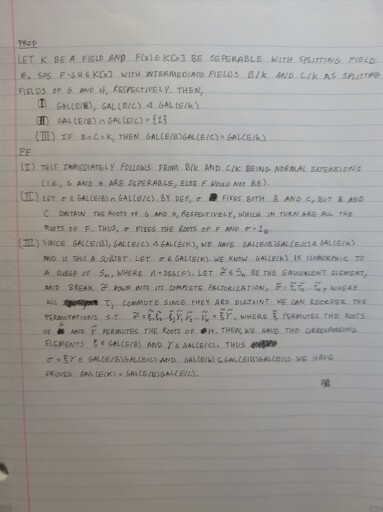 PROP
LET K BE A FIELD AND F(X) ∈ K[X] BE SEPERABLE WITH SPLITTING FIELD
E. SPS F = GH ∈ K[X] WITH INTERMEDIATE FIELDS B/K AND C/K AS SPLITTING
FIELDS OF G AND H, RESPECTIVELY. THEN,
(I) GAL(E/B), GAL(E/C) ◁ GAL(E/K)
(II) GAL(E/B) ∩ GAL(E/C) = {1}
(III) IF B ∩ C = K, THEN GAL(E/B)GAL(E/C) = GAL(E/K)
PF
(I) THIS IMMEDIATELY FOLLOWS FROM B/K AND C/K BEING NORMAL EXTENSIONS
(I.E., G AND H ARE SEPERABLE, ELSE F WOULD NOT BE).
(II) LET σ ∈ GAL(E/B) ∩ GAL(E/C). BY DEF, σ FIXES BOTH B AND C, BUT B AND
C CONTAIN THE ROOTS OF G AND H, RESPECTIVELY, WHICH IN TURN ARE ALL THE
ROOTS OF F. THUS, σ FIXES THE ROOTS OF F AND σ = 1
(III) SINCE GAL(E/B), GAL(E/C) ◁ GAL(E/K), WE HAVE GAL(E/B)GAL(E/C) ◁ GAL(E/K)
AND IS THUS A SUBSET. LET σ ∈ GAL(E/K). WE KNOW GAL(E/K) IS ISOMORPHIC TO
A SUBGP OF Sₙ, WHERE n = DEG(F). LET σ̃ ∈ Sₙ BE THE EQUIVALENT ELEMENT,
AND BREAK σ̃ DOWN INTO ITS COMPLETE FACTORIZATION, WHERE
ALL COMMUTE SINCE THEY ARE DISJOINT. WE CAN REORDER THE
PERMUTATIONS S.T. WHERE ξ̃ PERMUTES THE ROOTS
OF G AND γ̃ PERMUTES THE ROOTS OF H. THEN, WE HAVE THE CORRESPONDING
ELEMENTS ξ ∈ GAL(E/B) AND γ ∈ GAL(E/C). THUS
σ = ξγ ∈ GAL(E/B)GAL(E/C) AND GAL(E/K) ⊆ GAL(E/B)GAL(E/C). WE HAVE
PROVED GAL(E/K) = GAL(E/B)GAL(E/C).